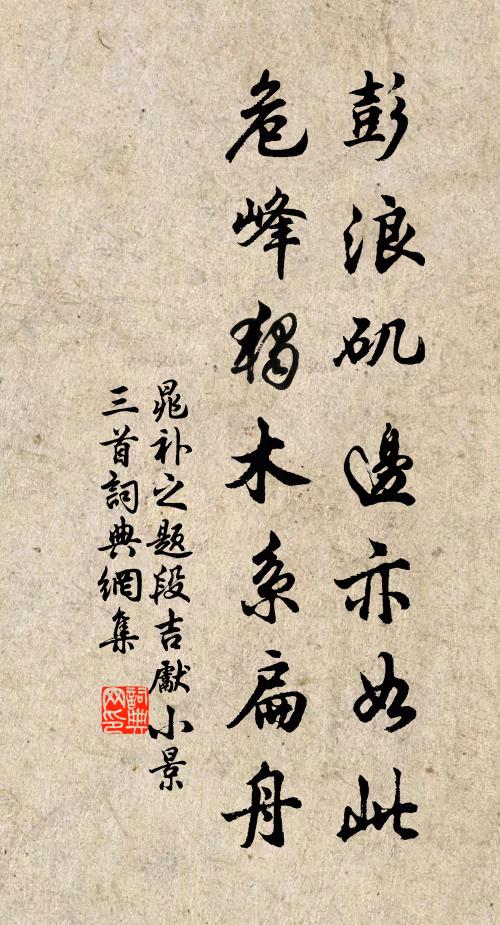 彭浪矶邊亦如此
危峰獨木系扁舟
晁补之题段吉獻小景
三首詞典網集
詞典网印